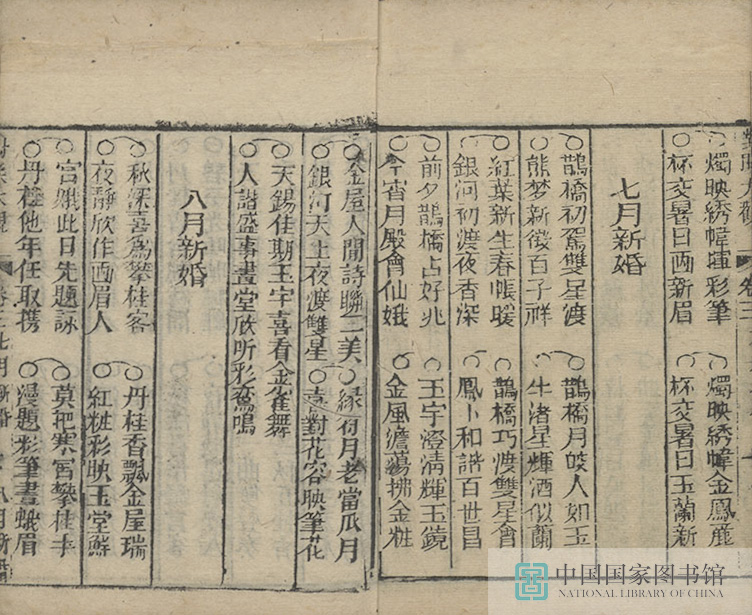 燭映綉幃暉彩筆　燭映綉幃金鳳麗
杯交暑日画新眉　杯交暑日玉蘭新
七月新婚
鵲橋初駕雙星渡　鵲橋月皎人如玉
熊梦新徵百子祥　牛渚星輝酒似蘭
紅葉新生春帳暖　鵲橋巧渡雙星會
銀河初渡夜香深　鳳卜和諧百世昌
前夕鵲橋占好兆　玉宇澄清輝玉鏡
今宵月殿會仙娥　金風澹蕩拂金粧
金屋人間詩聯二美　緣荷月老當瓜月
銀河天上夜渡雙星　喜對花容映筆花
天錫佳期玉宇喜看金雀舞
人諧盛事畫堂欣听彩鸞鳴
八月新婚
秋深喜為攀桂客　丹桂香飄金屋瑞
夜靜欣作画眉人　紅粧彩映玉堂鮮
宮娥此日先題詠　莫把寒宮攀桂手
丹桂他年任取携　漫題彩筆畫蛾眉
卷三七月新婚　八月新婚
中国国家图书馆
NATIONAL LIBRARY OF CHINA